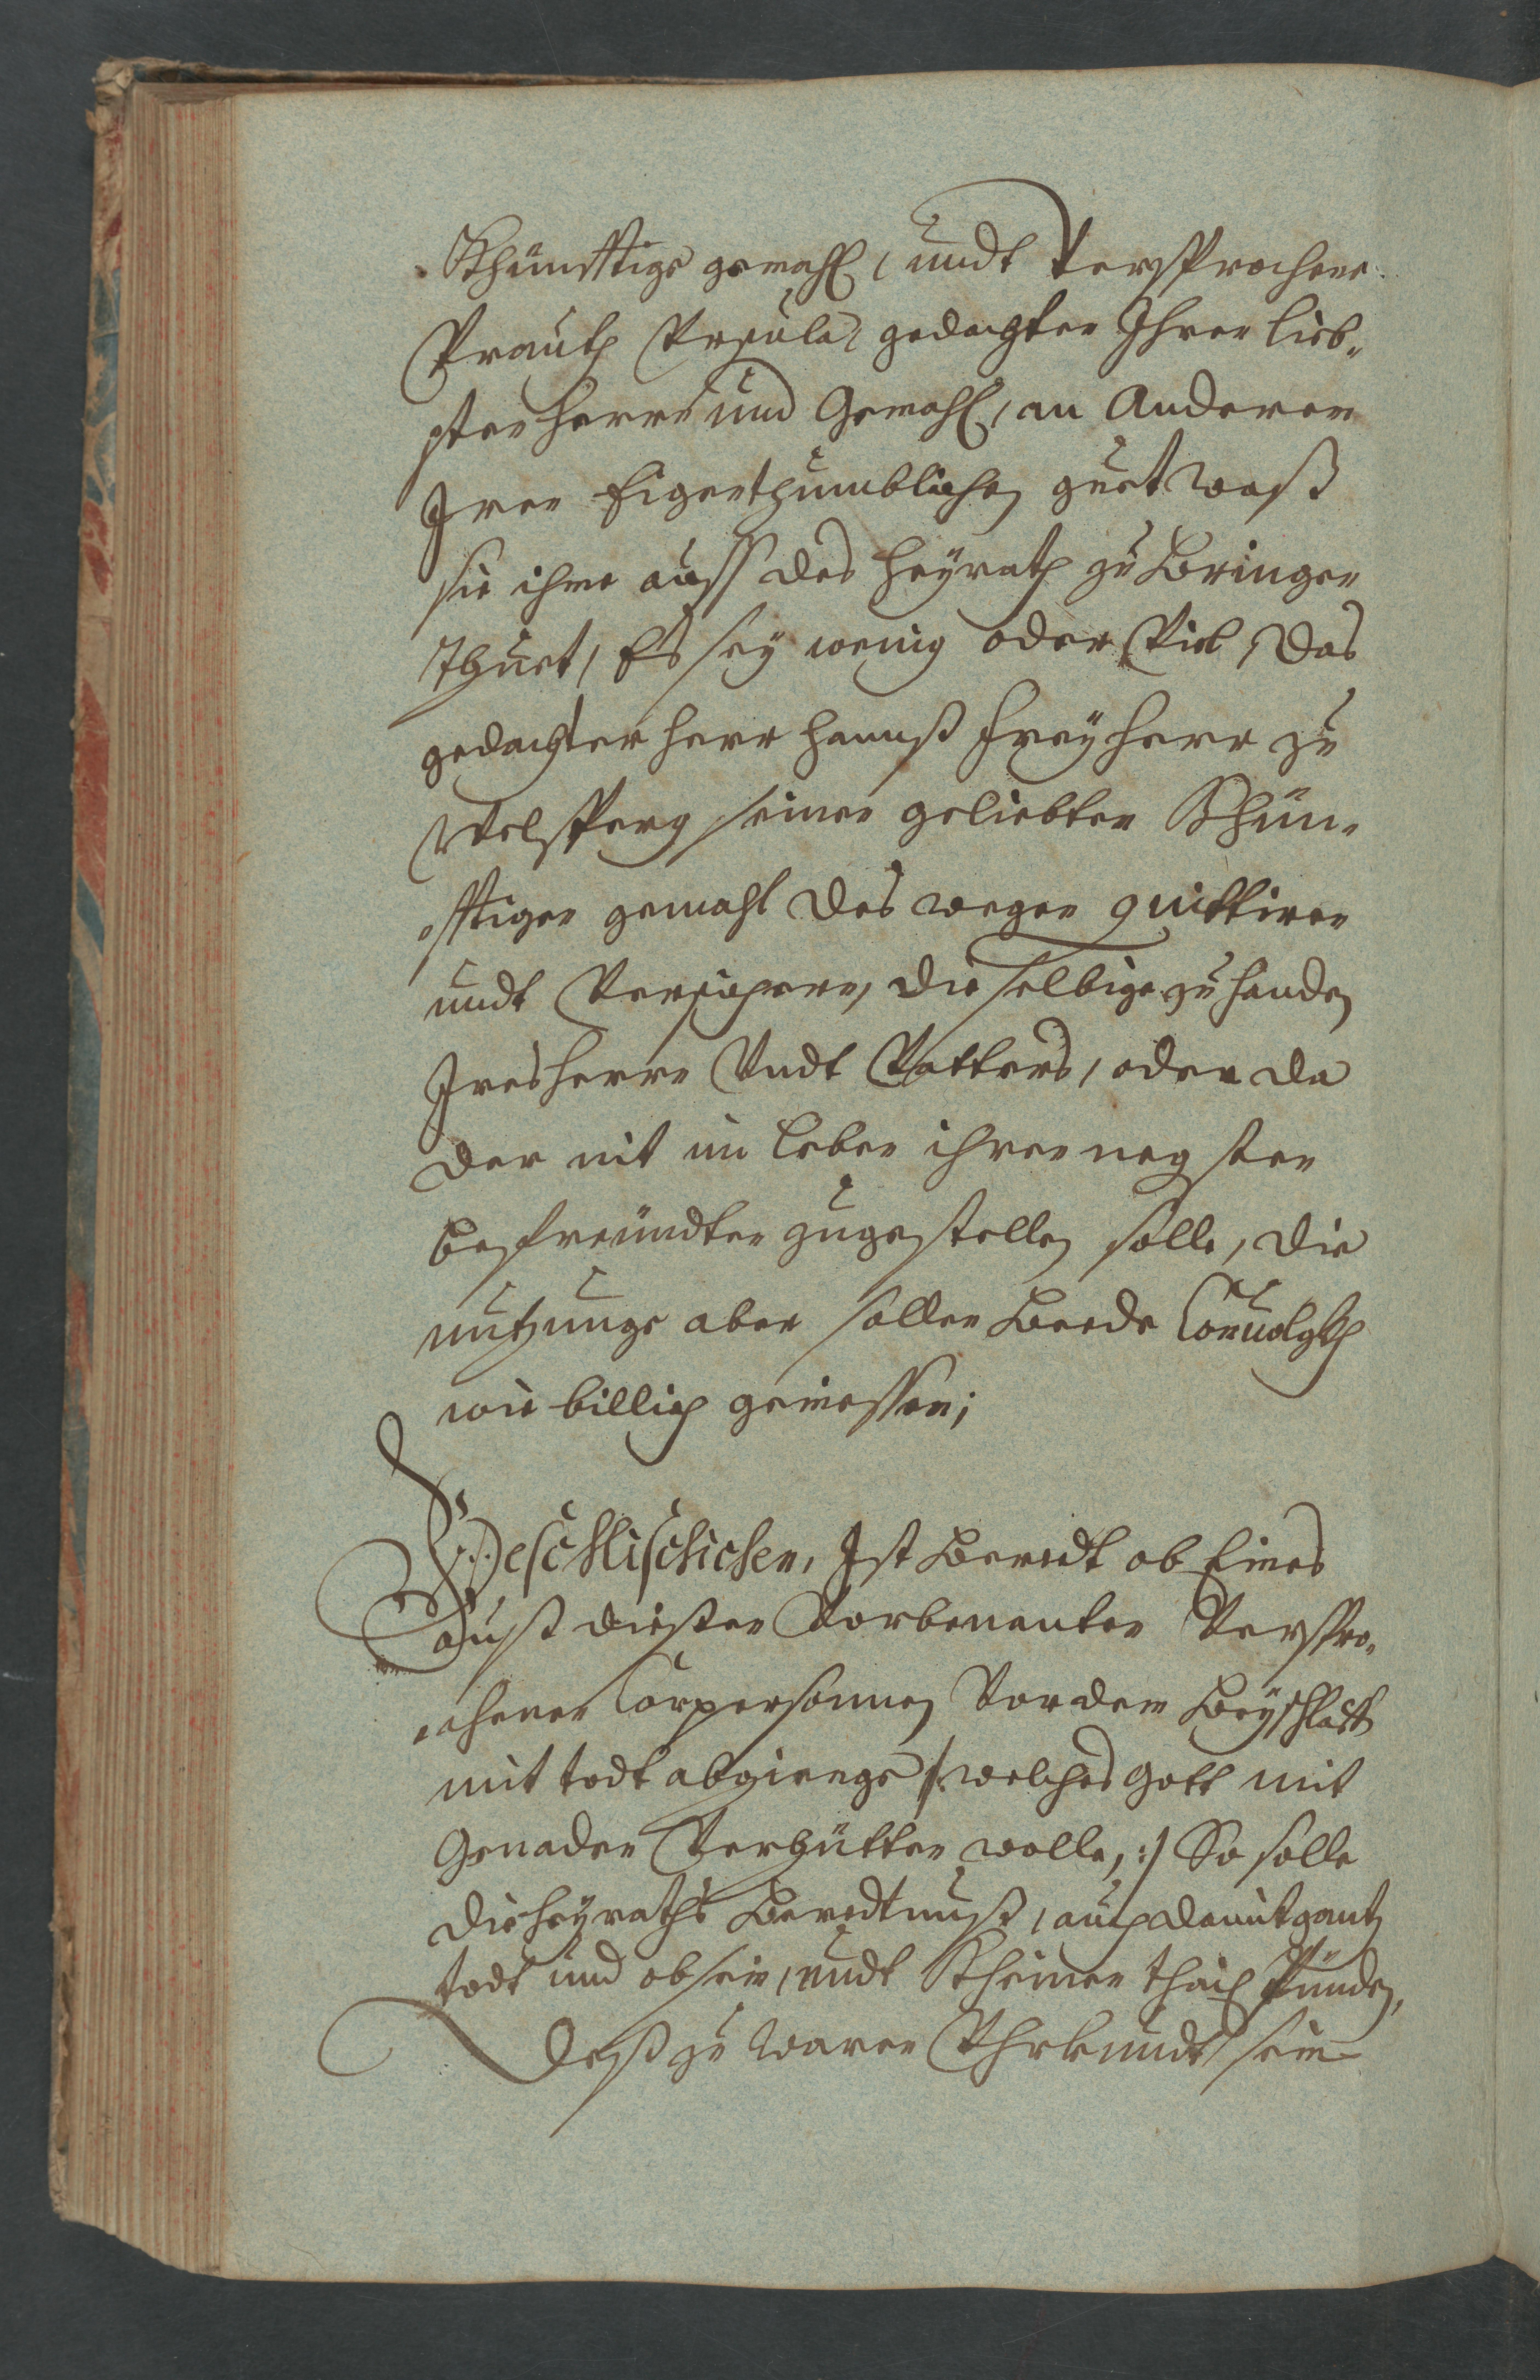 Khünfftige gemahl, undt Versprochene
Prauth Ursula, gedachten Ihren lieb„
sten herrn und Gemahl, an Anderen
Iren Eigenthumblichen guet waß
sie ihme auff des heyrath zu Bringen
thuet, Es sey wenig oder Viel, Das
gedachter herr hannß freyherr zu
Welsperg seiner geliebten Khün„
„fftigen gemahl des wegen quittiren
undt Versichern, die selbige zu handen
Ires herrn Undt Vatters, oder da
der nit im leben ihren negsten
befreündten zuegestellen solle, die
nutzunge aber sollen Beede
wie billich geniessen;
Beschlischichen, Ist Beredt ob Eines
auß dießen Vorbenanten Verspro„
„chenen Corpersonnen Vor dem Beyschlaff
mit todt abgienge /: welches Gott mit
Genaden Verhütten wolle, :/ So solle
die heyraths Beredtnuß, auch damit gantz
todt und ab sein, undt Kheinen thail Pünden,
Deß zu waren Uhrkundt sein